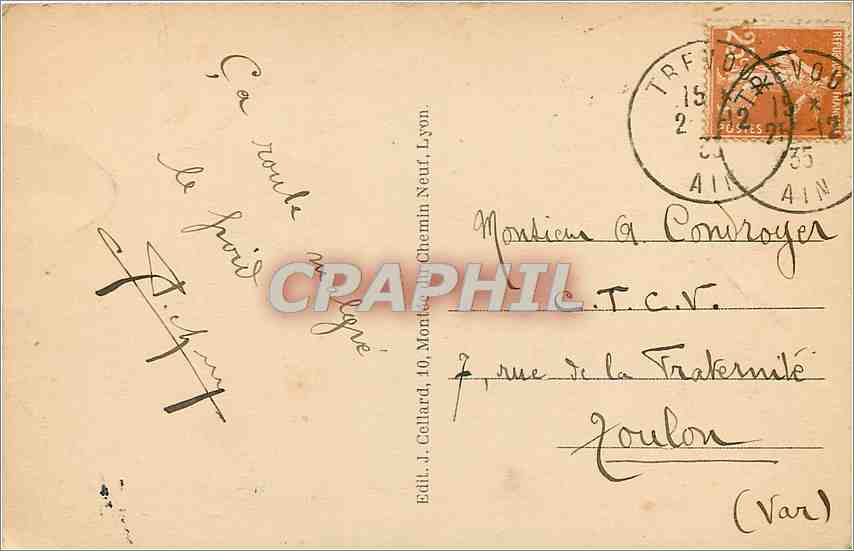 Ça roule malgré
le froid
Edit. J. Cellard, 10, Montée du Chemin Neuf, Lyon.
25c
POSTES
TREVOUX
15 *
2 -12
35
AIN
TREVOUX
15 *
25 -12
35
AIN
CPAPHIL
Monsieur A. Condroyer
C.T.C.V.
7, rue de la Fraternité
Toulon
(Var)